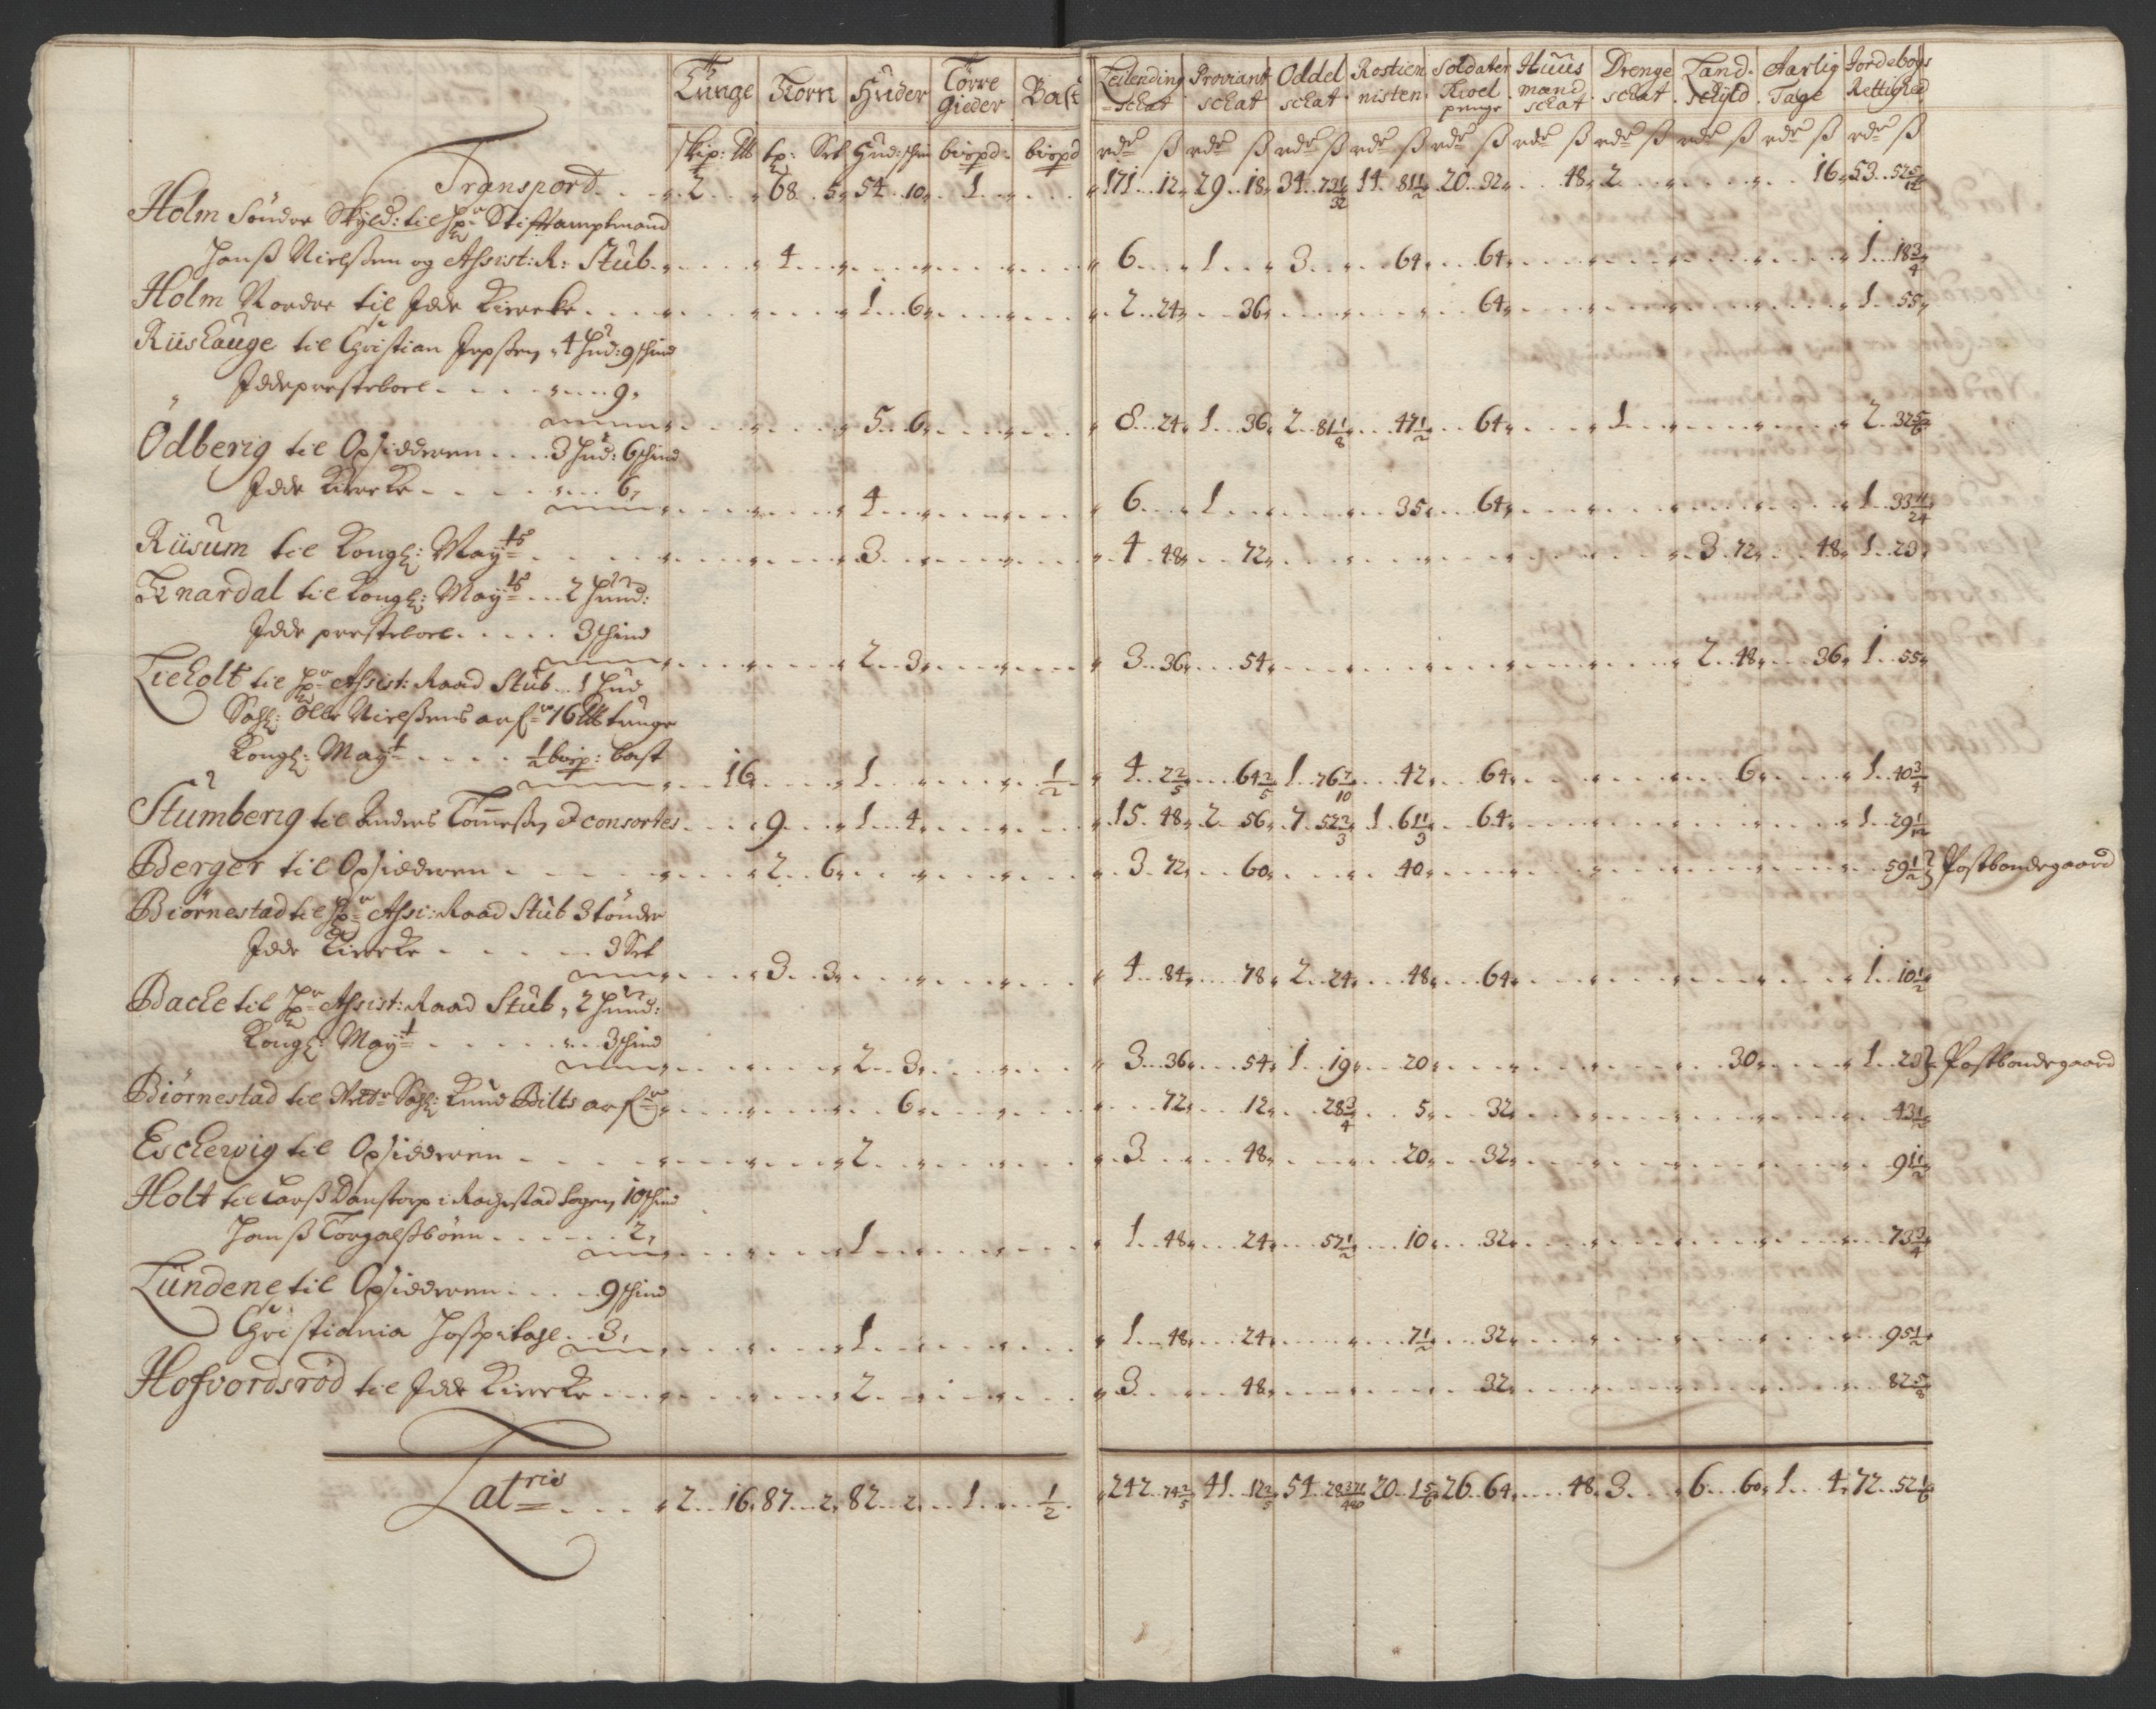 Tunge Korn Huder Törre Gieder Bast Leilending schat Proviant schat Oddel schat Rostien nisten Soldater Kioel penge Huus mand schat Drenge schat Land schyld Aarlig Tage Jordebogs Rettighed
skip: ℔ tp: Set Hud: schin bispd: bispd rdr ß rdr ß rdr ß rdr ß rdr ß rdr ß rdr ß rdr ß rdr ß rdr ß
Transpord 2 68 5 54 10 1 171 12 29 18 34 73 1/32 14 81 1/2 20 32 48 2 16 53 52 5/12
Holm Söndre Skyld: til Hr Stiftamptmand
Hanß Nielßen og Assist: R: Stub 4 6 1 3 64 64 1 18 3/4
Holm Nordre til Idde Kircke 1 6 2 24 36 64 1 55
Riishauge til Christian Jepßen 4 Hud: 9 schind
Iddepresteboel 9
5 6 8 24 1 36 2 81 1/8 47 1/2 64 1 2 32 5/6
Ödberig til Opsidderen 3 Hud: 6 schind
Idde Kircke 6
4 6 1 35 64 1 33 11/24
Riisum til Kongl: Mayts 3 4 48 72 3 72 48 1 29
Knardal til Kongl: Mayts 2 Huud:
Idde presteboel 3 schind
2 3 3 36 54 2 48 36 1 55
Lieholt til Hr Assist: Raad Stub 1 Hud
Sahl: Olle Nielßens arfr 16 ℔ tunge
Kongl: Mayt 1/2 bisp: bast
16 1 1/2 4 2 2/5 64 2/5 1 76 7/10 42 64 6 1 40 3/4
Stumberig til Anders Tommeßen & consortes 9 1 4 15 48 2 56 7 52 2/3 1 61 1/3 64 1 29 1/12
Berger til Opsidderen 2 6 3 72 60 40 59 1/2 Postbondegaard
Biörnestad til Hr Assi: Raad Stub 3 tönder
Idde Kircke 3 Set
3 3 4 84 78 2 24 48 64 1 10 1/2
Bache til Hr Assist: Raad Stub 2 Huud:
Kongl: Mayt 3 schind
2 3 3 36 54 1 19 20 30 1 20 Postbondegaard
Biörnestad til Sahl: Knud Bilts arfr 6 72 12 28 3/4 5 32 43 1/2
Eschevig til Opsidderen 2 3 48 20 32 91 1/2
Holt til Larß Danstorp i Rachestad Sogen 10 schind
Hanß Torgalßbörn 2
1 1 48 24 57 1/2 10 32 73 3/4
Lundene til Opsidderen 9 schind
Christiania Hospitahl 3
1 1 48 24 7 1/2 32 95 1/2
Hofvordsröd til Idde Kircke 2 3 48 32 82 5/8
Latris 2 16 87 2 82 2 1 1/2 242 74 2/5 41 12 2/5 54 28 20 1 5/6 26 64 48 3 6 60 1 4 72 52 1/6